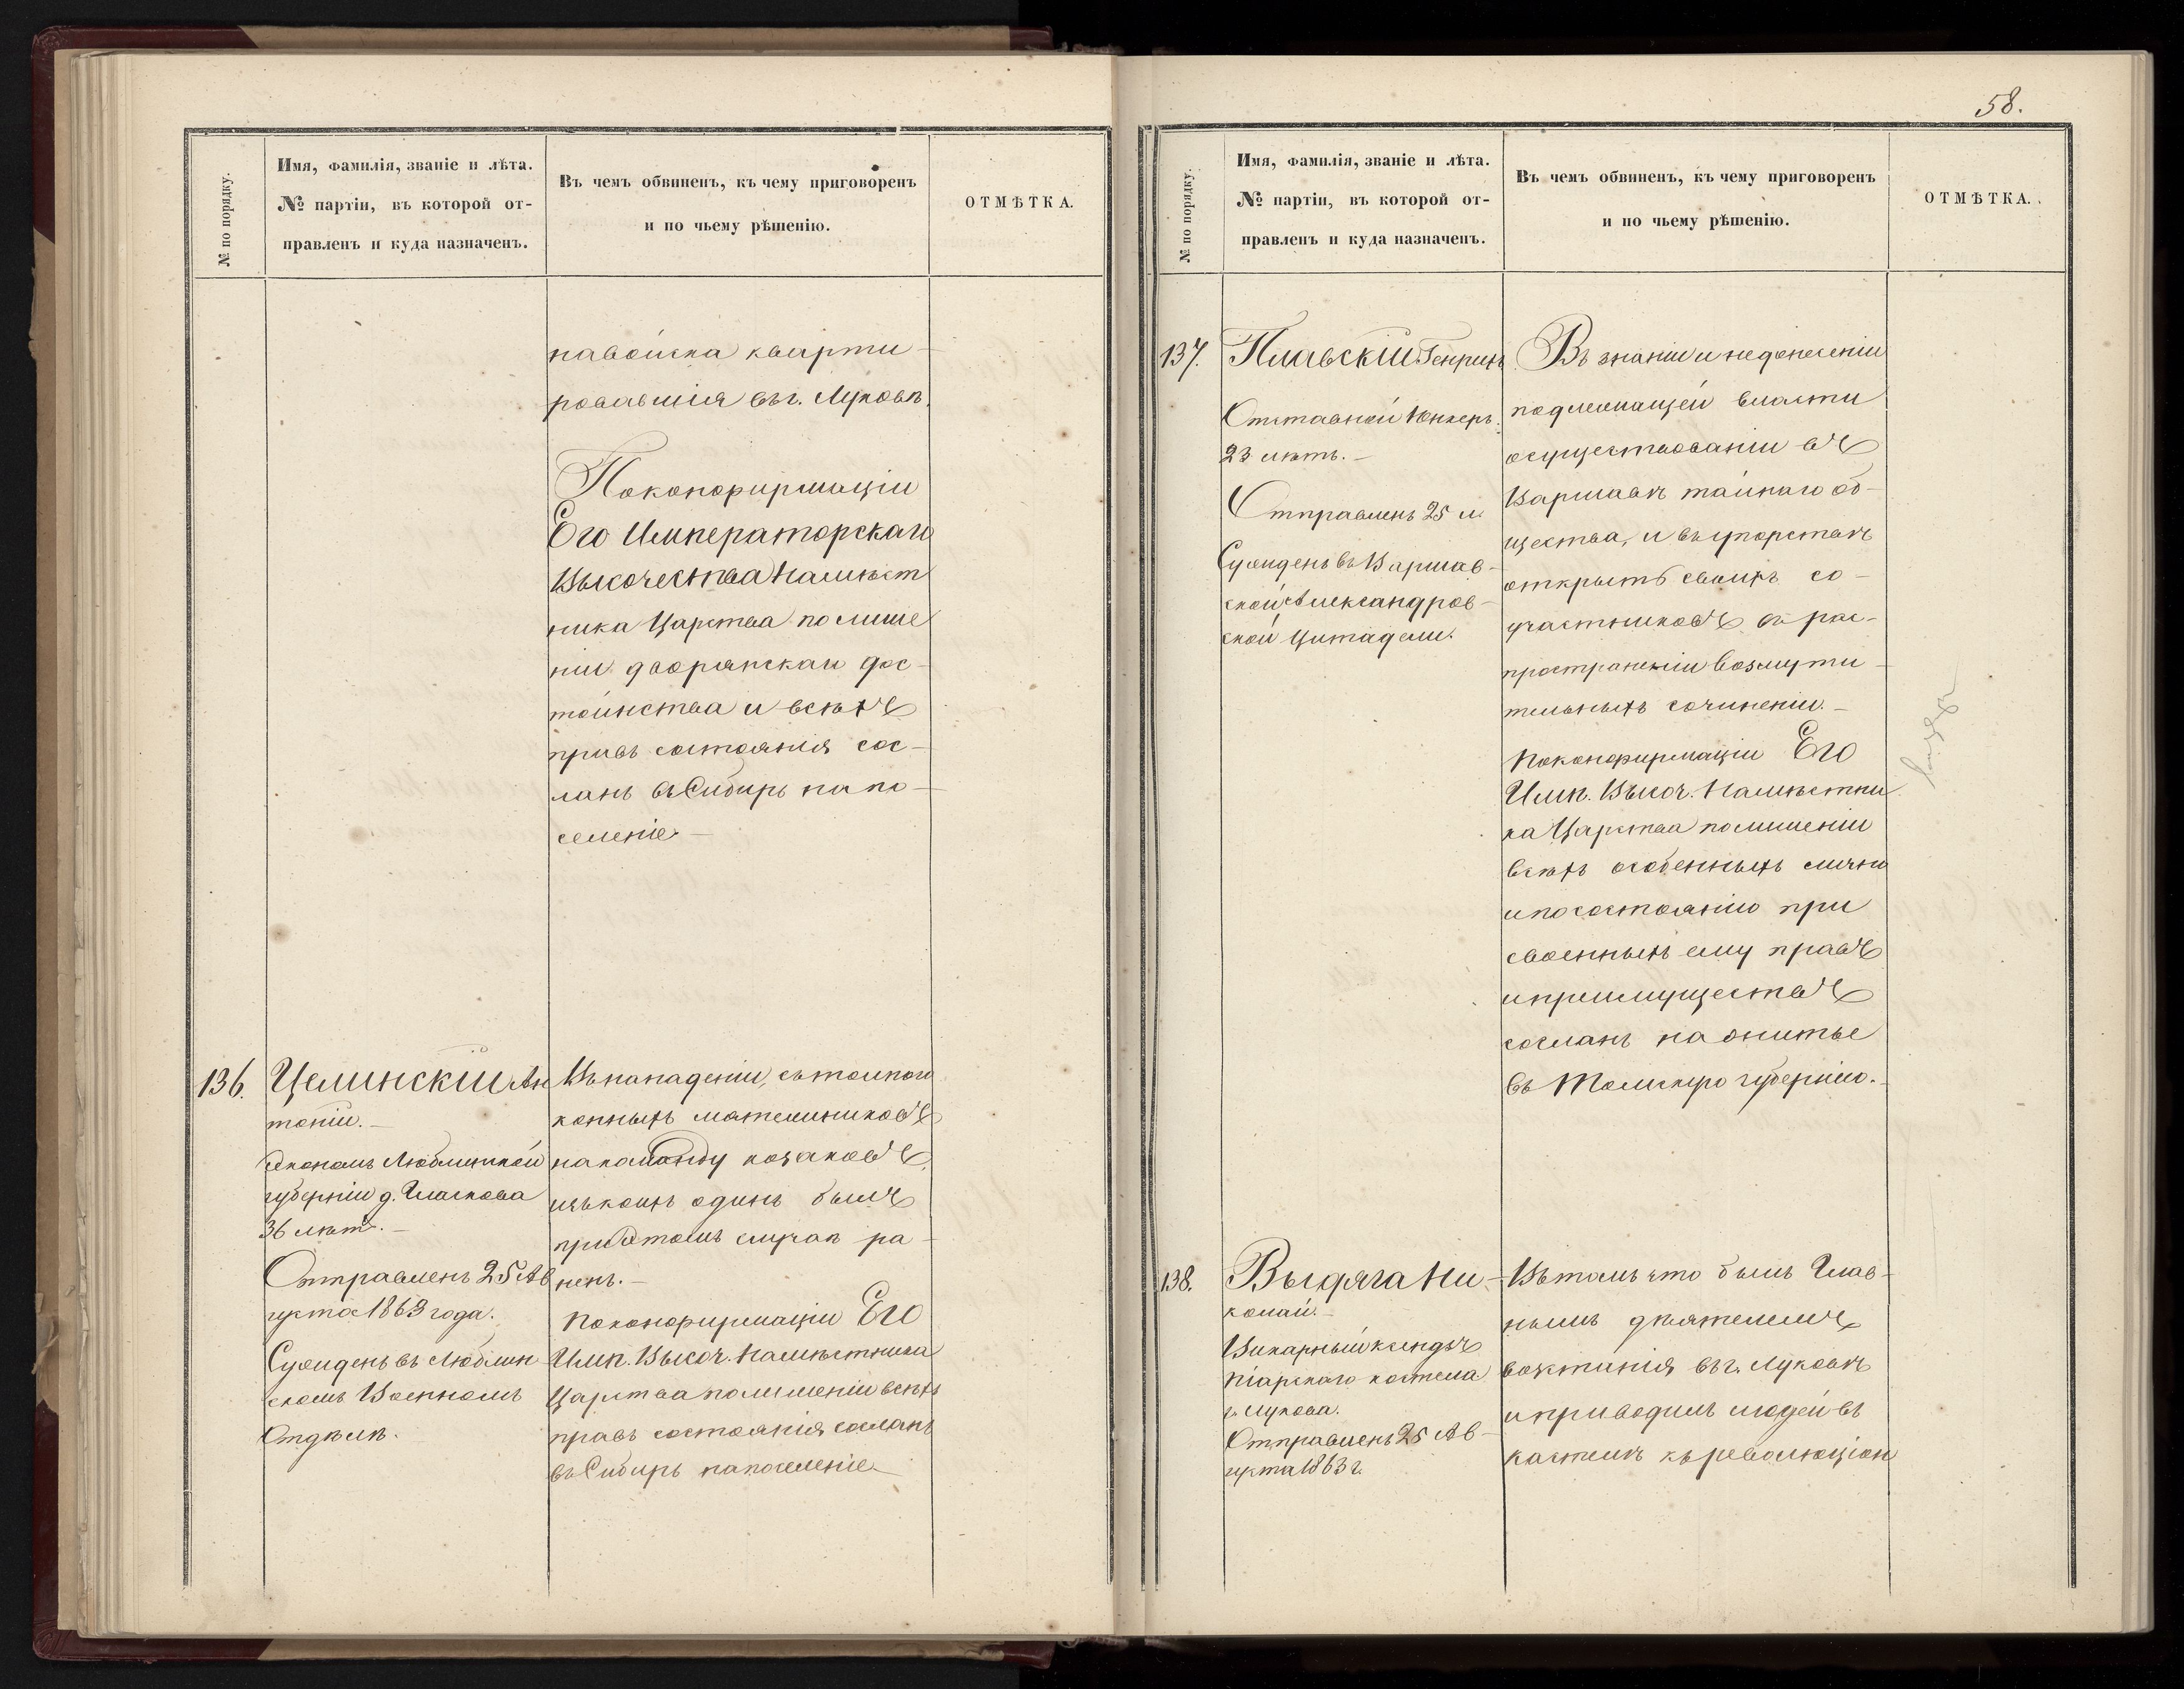 № по порядку.
Имя, фамилія, званіе и лѣта.
№ партіи, въ которой от-
правленъ и куда назначенъ.
Въ чемъ обвиненъ, къ чему приговоренъ
и по чьему рѣшенію.
ОТМѢТКА.
на войска кварти-
ровавшія въ г. Луковѣ.
По конфирмаціи
Его Императорскаго
Высочества Намѣст
ника Царства по лише
ніи дворянскаго дос-
тоинства и всѣхъ
правъ состоянія сос-
ланъ въ Сибирь на по-
селеніе.-
136.
Целинскій Ан
тоній.-
Экономъ Люблинской
губерніи д. Гласкова
36 лѣтъ.-
Отправленъ 25 Ав
густа 1863 года.
Сужденъ въ Люблин-
скомъ Военномъ
Отдѣлѣ.
Въ нападеніи, съ толпою
конныхъ мятежниковъ
на команду козаковъ
изъ коихъ одинъ былъ
при этомъ случаѣ ра-
ненъ.-
По конфирмаціи Его
Имп. Высоч. Намѣстника
Царства по лишеніи всѣхъ
правъ состоянія сосланъ
въ Сибирь на поселеніе
58.
№ по порядку.
Имя, фамилія, званіе и лѣта.
№ партіи, въ которой от-
правленъ и куда назначенъ.
Въ чемъ обвиненъ, къ чему приговоренъ
и по чьему рѣшенію.
ОТМѢТКА.
137.
Плавскій Генрихъ
Отставной Юнкеръ.
23 лѣтъ.-
Отправленъ 25 л.
Сужденъ въ Варшав-
ской Александров-
ской Цитадели.
Въ знаніи и недонесеніи
подлежащей власти
о существованіи въ
Варшавѣ тайнаго об-
щества, и въ упорствѣ
открыть своихъ со-
участниковъ въ рас-
пространеніи возмути-
тельныхъ сочиненій.-
По конфирмаціи Его
Имп. Высоч. Намѣстни
ка Царства по лишеніи
всѣхъ особенныхъ лично
и по состоянію при
своенныхъ ему правъ
и преимуществъ
сосланъ на житье
въ Томскую губернію.-
138.
Выдрага Ни-
колай.-
Викарный ксендзъ
піарскаго костела
г. Лукова.
Отправленъ 25 Ав-
густа 1863 г.
Въ томъ что былъ Глав-
нымъ дѣятелемъ
возстанія въ г. Луковѣ
и приводилъ людей въ
костелѣ къ революціон